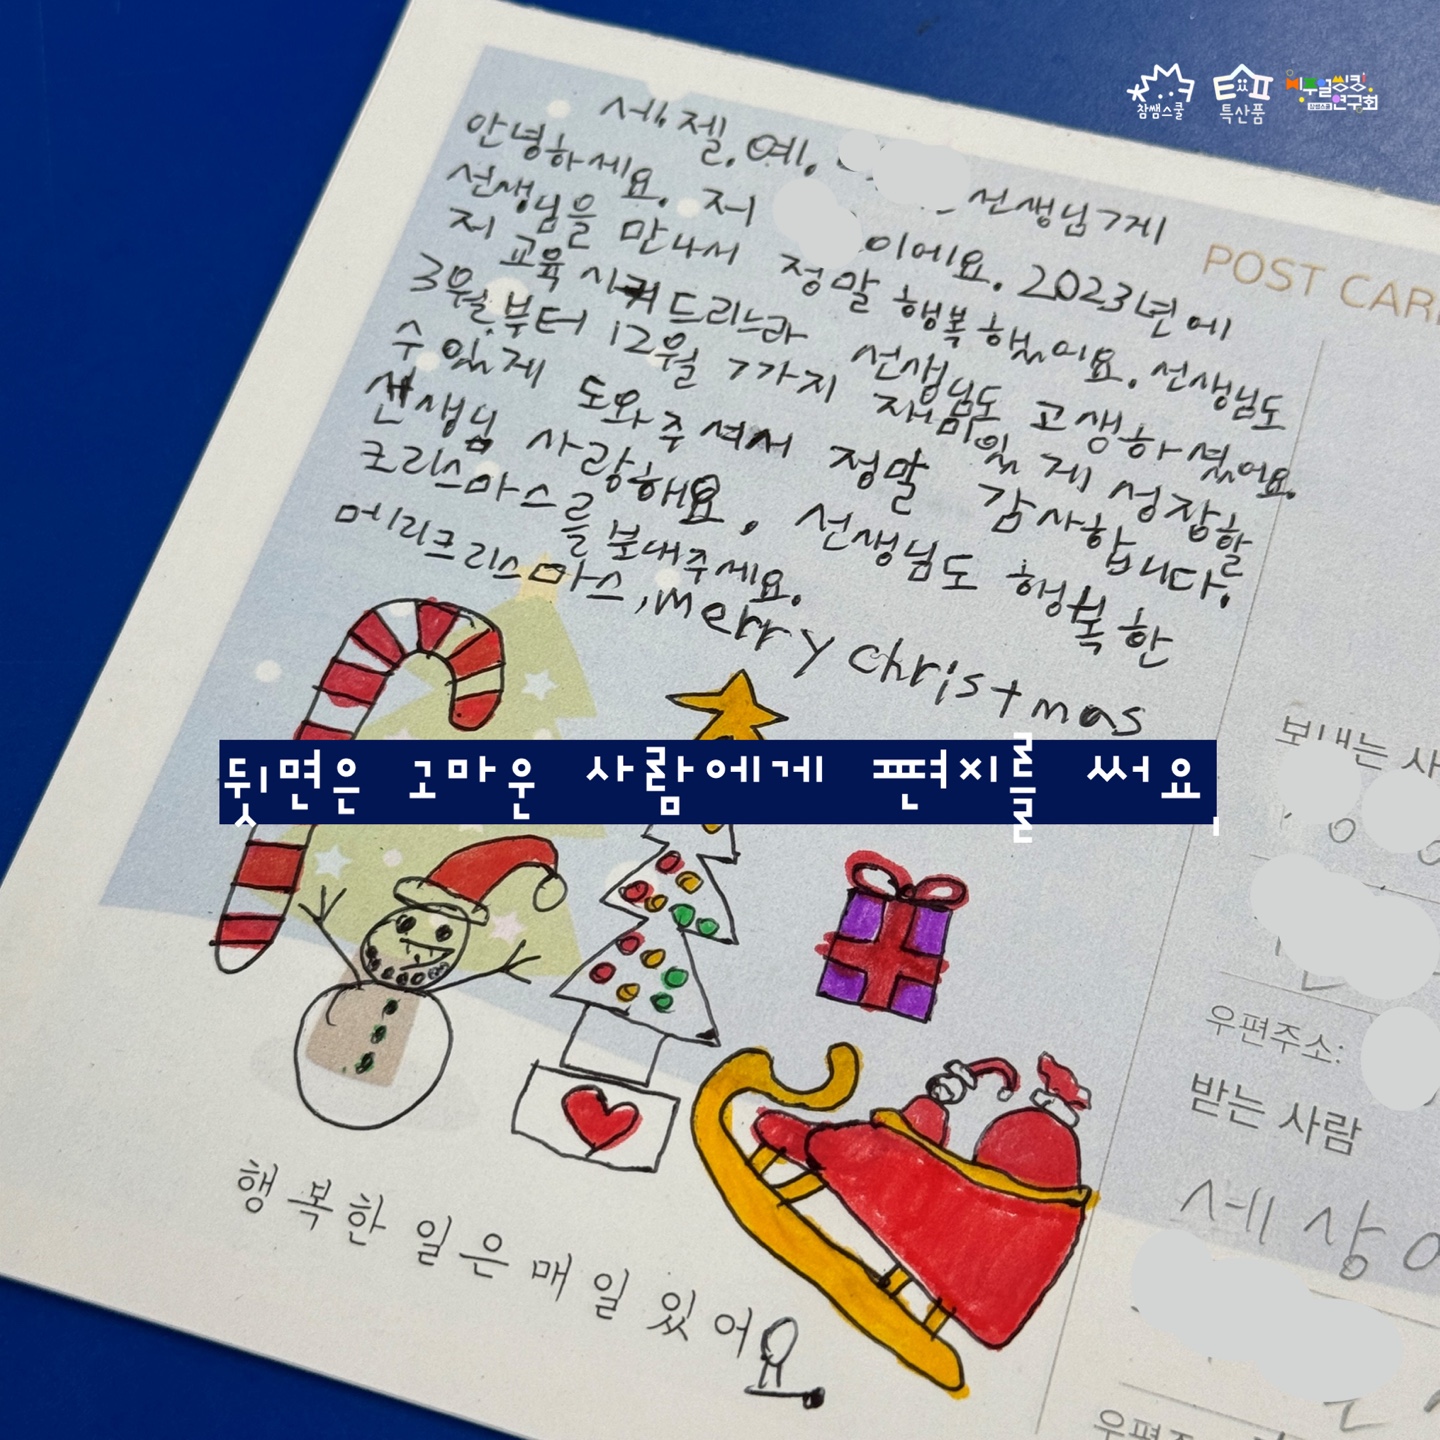 참쌤스쿨
특산품
비주얼씽킹
참쌤스쿨 연구회
세.젤.예. 선생님께
안녕하세요. 저 이에요. 2023년에
선생님을 만나서 정말 행복했어요. 선생님도
저 교육 시켜드리느라 선생님도 고생하셨어요.
3월부터 12월 까지 재미있게 성장할
수 있게 도와주셔서 정말 감사합니다.
선생님 사랑해요. 선생님도 행복한
크리스마스를 보내주세요.
메리크리스마스, merry christmas
뒷면은 고마운 사람에게 편지를 써요.
행복한 일은 매일 있어요
POST CAR
보내는 사
우편주소:
받는 사람
세상
우편주